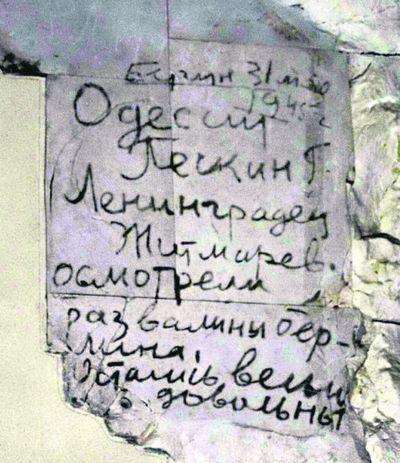 Берлин 31 мая
1945 г
Одессит
Г.
Ленинградец
Житмарев.
осмотрели
развалины бер-
лина.
Остались вельми
довольны